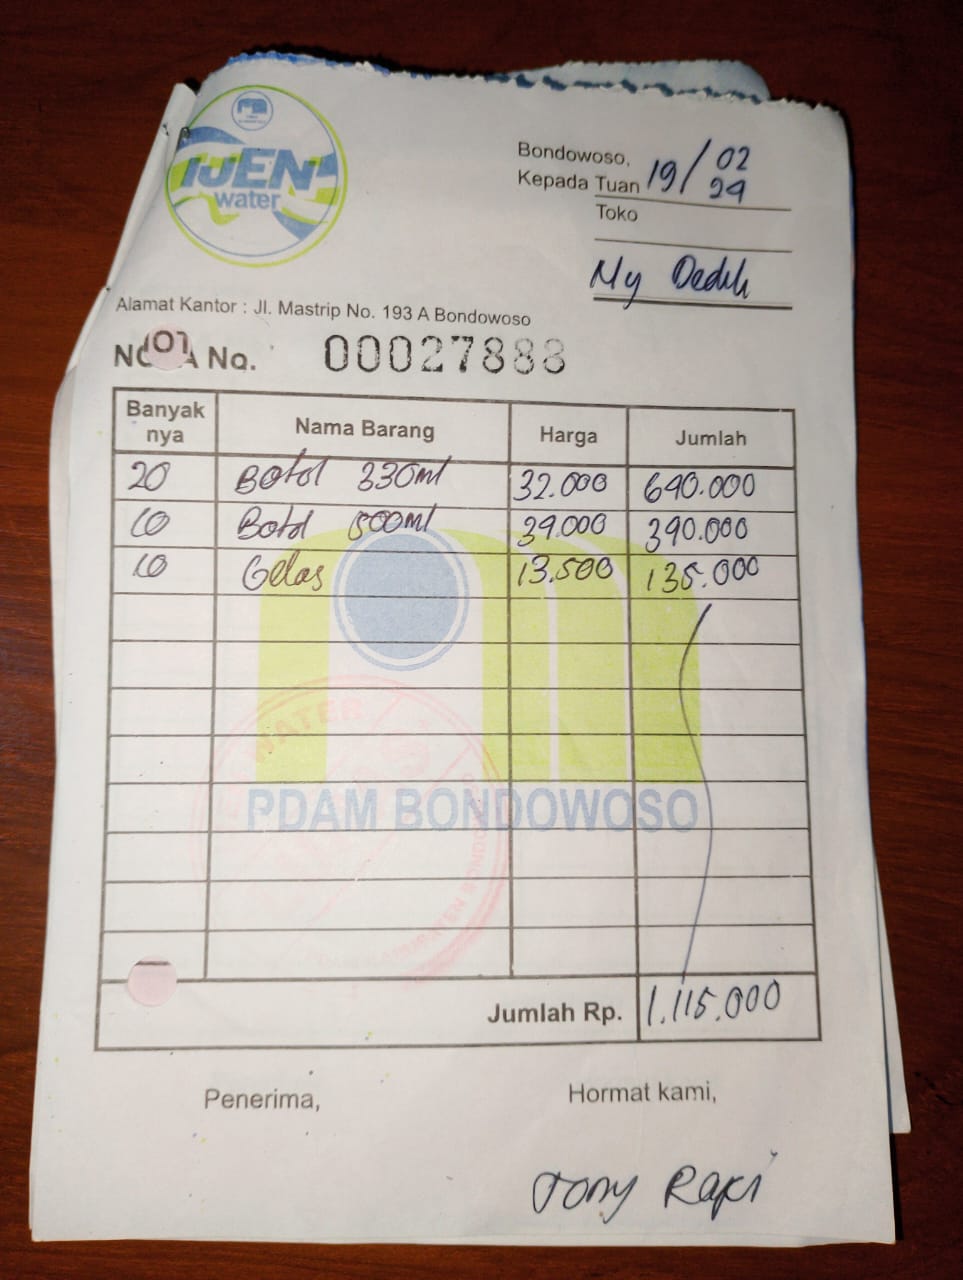 IJEN
water
Bondowoso, 19/02
Kepada Tuan 24
Toko
My Dedek
Alamat Kantor : Jl. Mastrip No. 193 A Bondowoso
No. 00027888
Banyak nya Nama Barang Harga Jumlah
20 Botol 330ml 32.000 640.000
10 Botol 500ml 39.000 390.000
10 Gelas 13.500 135.000
WATER
PDAM BONDOWOSO
Jumlah Rp. 1.115.000
Penerima, Hormat kami,
Tony Rapi